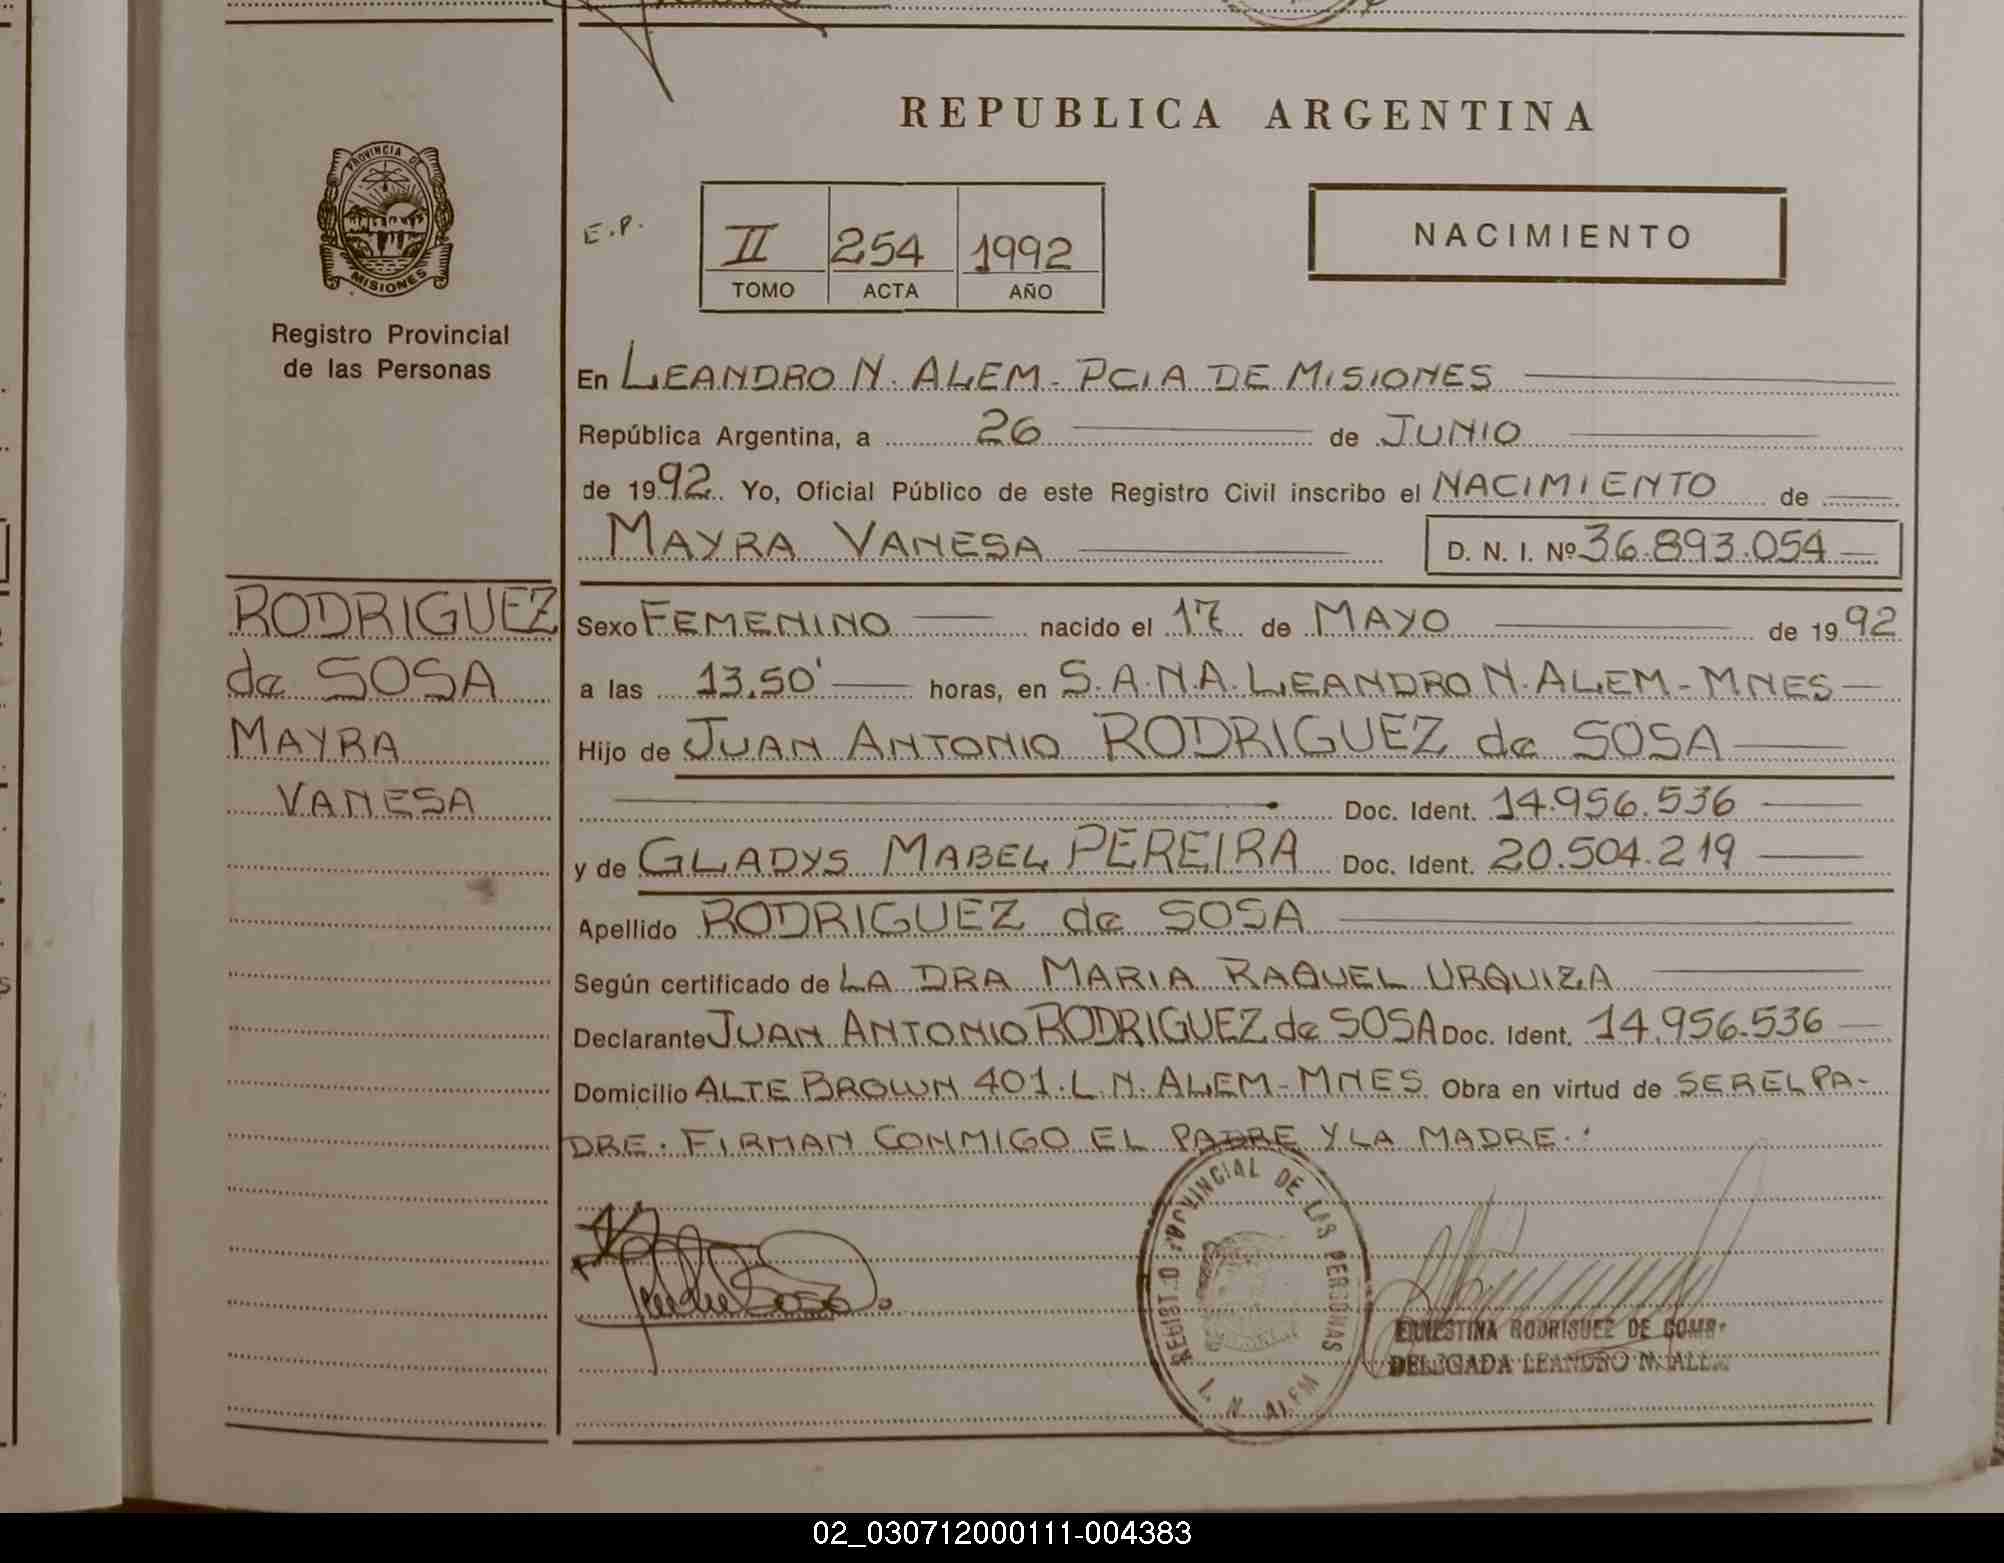 REPUBLICA ARGENTINA
PROVINCIA DE
MISIONES
Registro Provincial
de las Personas
E.P.
II 254 1992
TOMO ACTA AÑO
NACIMIENTO
En LEANDRO N. ALEM - PCIA DE MISIONES
República Argentina, a 26 de JUNIO
de 1992. Yo, Oficial Público de este Registro Civil inscribo el NACIMIENTO de
MAYRA VANESA D. N. I. Nº 36.893.054
RODRIGUEZ
de SOSA
MAYRA
VANESA
Sexo FEMENINO nacido el 17 de MAYO de 1992
a las 13.50' horas, en S.A.N.A. LEANDRO N. ALEM - MNES
Hijo de JUAN ANTONIO RODRIGUEZ de SOSA
Doc. Ident. 14.956.536
y de GLADYS MABEL PEREIRA Doc. Ident. 20.504.219
Apellido RODRIGUEZ de SOSA
Según certificado de LA DRA MARIA RAQUEL URQUIZA
Declarante JUAN ANTONIO RODRIGUEZ de SOSA Doc. Ident. 14.956.536
Domicilio ALTE BROWN 401. L.N. ALEM - MNES Obra en virtud de SER EL PA-
DRE. FIRMAN CONMIGO EL PADRE Y LA MADRE.
REGISTRO PROVINCIAL DE LAS PERSONAS
L. N. ALEM
ERNESTINA RODRIGUEZ DE
DELEGADA LEANDRO N. ALEM
02_030712000111-004383